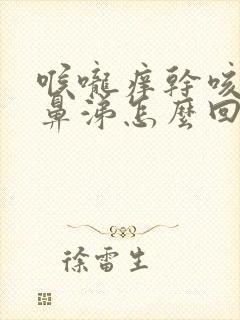 喉嚨痒幹咳
鼻涕怎麼回
徐雷生